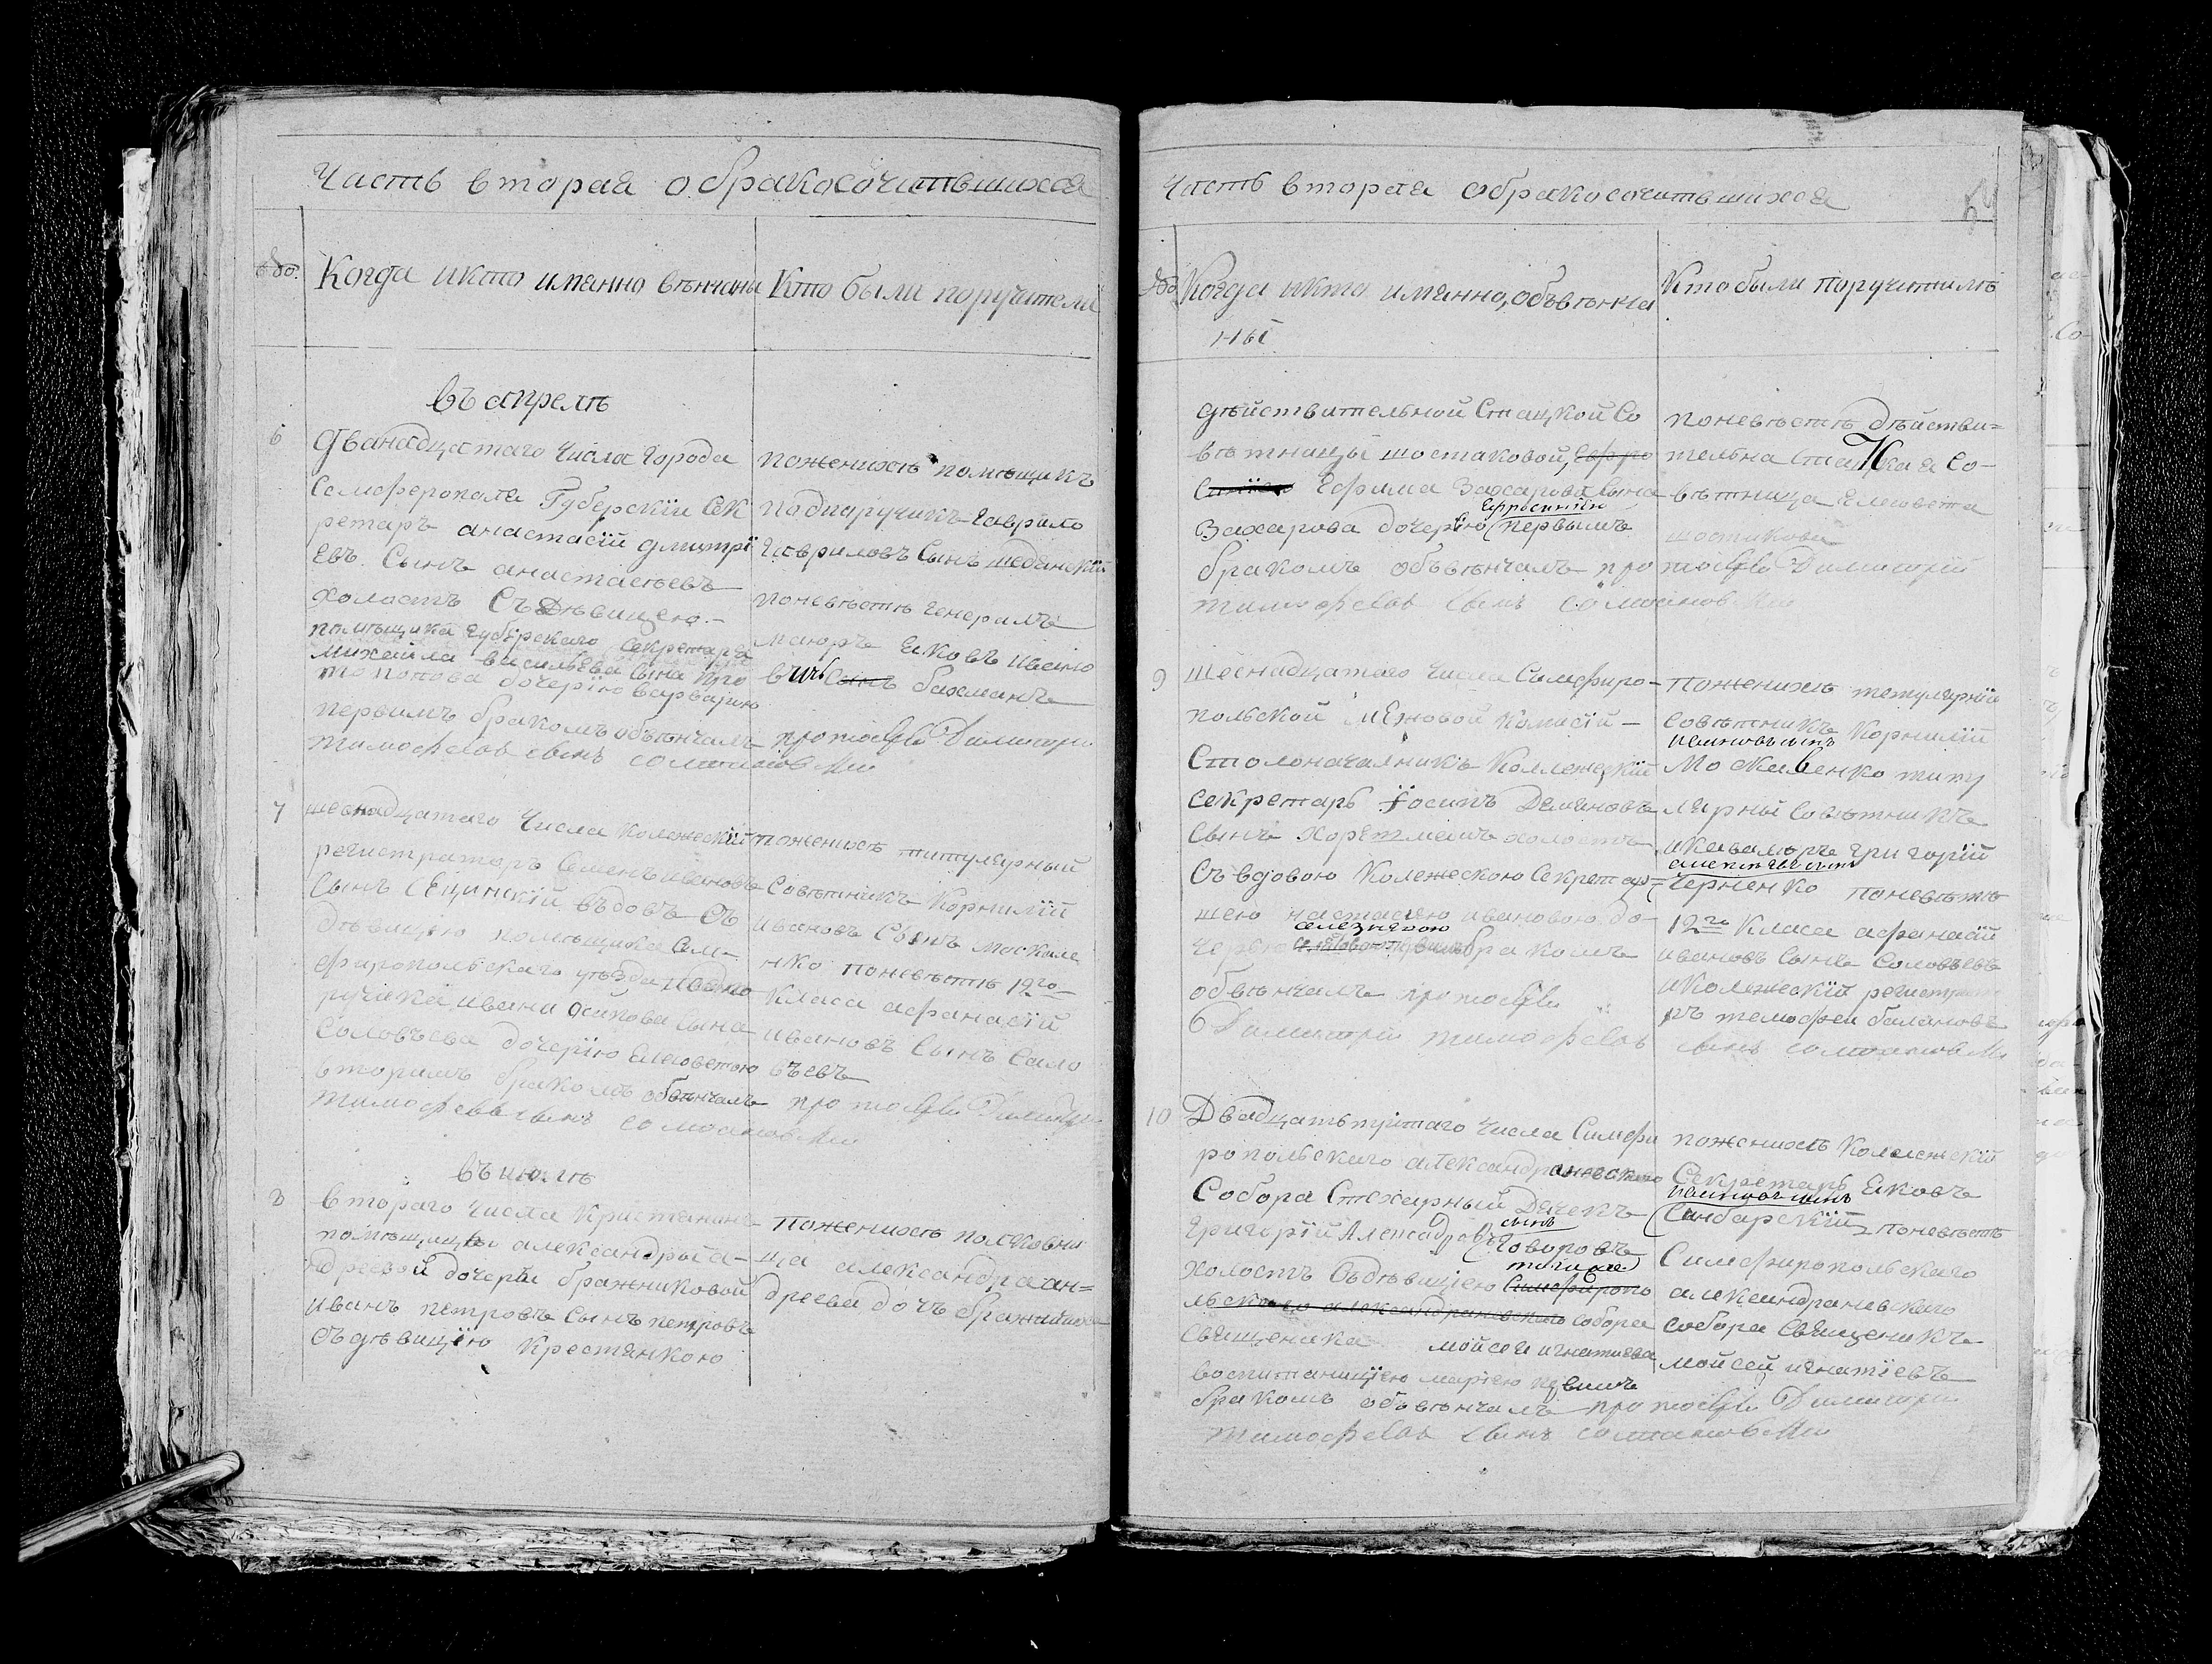 Часть вторая о бракосочитавшихся
Когда икто имянно вѣнчаны
Кто были поручители
въ апрелѣ
6
Дванадцатаго числа города
Семферополя Губерскїи Сек
ретарь анастасїй дмитрї
евъ Сынъ анастасьевъ
холостъ Съ Дѣвицею.-
помѣщика губерскаго секретаря
михайла васильева сына про
топопова дочерїю варварию
первымъ бракомъ обвѣнчалъ
протоіерей Димитри
тимофеевъ сынъ
поженихѣ помѣщикъ
подпаручикъ Гаврило
Гавриловъ Сынъ
поневѣстѣ Генералъ
маюръ Яковъ Ивано
вичь Сынъ бахманъ
7
шеснадцатаго Числа Колежескїй
регистраторъ Семенъ ивановъ
Сынъ Сецинскїй вдовъ Съ
дѣвицею помѣщика Сим-
фиропольского уѣзда подпо
ручика ивана Осипова Сына
Соловьева дочерїю Елисоветою
вторымъ бракомъ обвѣнчалъ
протоіерей Димитри
тимофеевъ сынъ
поженихѣ титулярный
Совѣтникъ Корнилїй
ивановъ Сынъ москале
нко поневѣстѣ 12го
Класа афанасїй
ивановъ Сынъ Соло
вьевъ
въ июлѣ
8
втораго числа Кристянинъ
помѣщицы александры а-
ндреевой дочери бражниковой
иванъ петровъ Сынъ петровъ
съ дѣвицїю Крестянкою
поженихѣ полковни
ца александра ан=
дреева дочь бражникова
Часть вторая обракосочитавшихся
54
Когда икто имянно, объвѣнча
ны
Кто были Поручители
дѣйствительной Стацкой Со
вѣтницы шостаковой, Евфро
Ефима Захарова Сына
Захарова дочерїю Ефросинїю первымъ
бракомъ обвѣнчалъ протоіерей Димитрїй
тимофеевъ сынъ
поневѣстѣ дѣйстви=
тельна Стацкая Со-
вѣтница Елисовета
шостакова
9
шеснадцатаго числа Симфиро-
польской межовой Комисїй -
Столоначалникъ Коллежскїй
секретарь їосипъ Демяновъ
сынъ холостъ
Съ вдовою Колежскою Секретар-
шею настасїею ивановою до-
черею Селезневою первымъ бракомъ
обвѣнчалъ протоіерей
Димитри тимофеевъ сынъ
поженихѣ титулярнїй
совѣтникъ Корнилїй
ивановъ сынъ
Москаленко титу
лярный Совѣтникъ
икавалеръ григорїй
алексѣевъ сынъ
Черненко поневѣстѣ
12го Класа афанасїй
ивановъ Сынъ Соловьевъ
иКолежскїй регистрато
ръ темофеи балановъ
10
Двадцать третаго числа Симфи
ропольскаго александраневскаго
Собора Стехарный Дячекъ
григорїй Александровъ сынъ
Говоровъ
холостъ Съдѣвицїею тогоже Симфиропо
льскаго александраневскаго собора
священика мойсея игнатиева
воспитаницїею марїею первымъ
бракомъ обвѣнчалъ протоіерей Димитри
тимофеевъ сынъ
поженихѣ Колежскїй
Секретарь Яковъ
ивановъ сынъ
Синбарскїй поневѣстѣ
Симфиропольскаго
александраневскаго
собора Священикъ
мойсей игнатїевъ